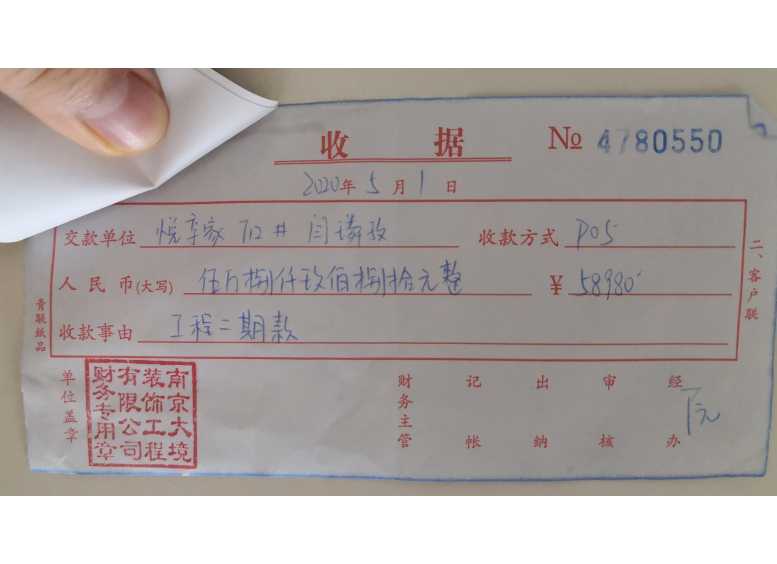 收据 № 4780550
2020年5月1日
交款单位 悦享家 712# 闫璘玫 收款方式 POS
人民币(大写) 伍万捌仟玖佰捌拾元整 ¥ 58980
收款事由 工程二期款
二、客户联
青联纸品
单位盖章
南京大境
装饰工程
有限公司
财务专用章
财务主管 记帐 出纳 审核 经办